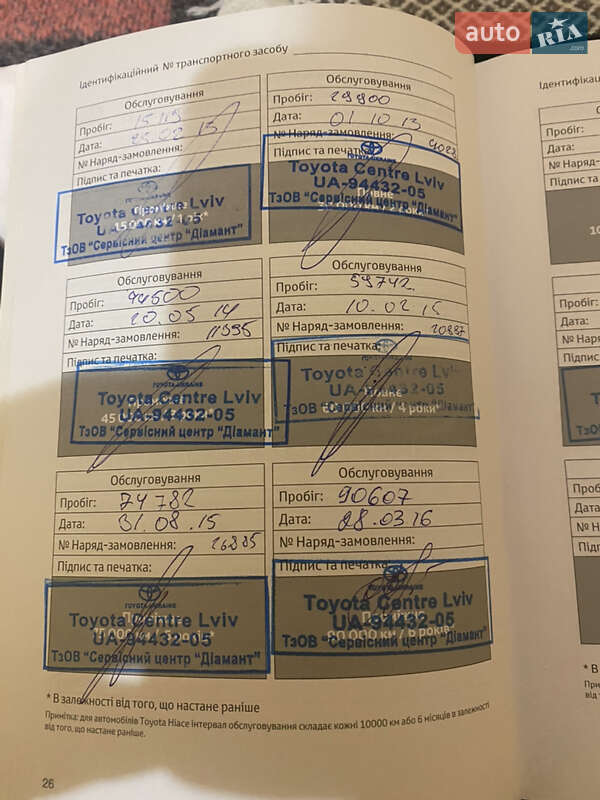 auto RIA.com
Ідентифікаційний № транспортного засобу
Ідентифікац
Обслуговування
Пробіг: 15119
Дата: 25.02 13
№ Наряд-замовлення:
Підпис та печатка:
Toyota Centre Lviv
UA-94432
15 000 км/ 1 рік*
ТзОВ "Сервісний центр "Діамант"
Обслуговування
Пробіг: 29900
Дата: 01 10 13
№ Наряд-замовлення:
Підпис та печатка:
TOYOTA-UKRAINE
Toyota Centre Lviv
UA-94432-05
ТзОВ "Сервісний центр "Діамант"
Обслуговування
Пробіг: 44500
Дата: 20.05 14
№ Наряд-замовлення: 11395
Підпис та печатка:
TOYOTA-UKRAINE
Toyota Centre Lviv
UA-94432-05
45
ТзОВ "Сервісний центр "Діамант"
Обслуговування
Пробіг: 59742
Дата: 10.02 15
№ Наряд-замовлення: 20887
Підпис та печатка:
Toyota Centre Lviv
UA-94432-05
Повне
/ 4 роки*
ТзОВ "Сервісний центр "Діамант"
Обслуговування
Пробіг: 74 782
Дата: 31.08.15
№ Наряд-замовлення: 26885
Підпис та печатка:
TOYOTA-UKRAINE
Toyota Centre Lviv
UA-94432-05
ТзОВ "Сервісний центр "Діамант"
Обслуговування
Пробіг: 90607
Дата: 28.03 16
№ Наряд-замовлення:
Підпис та печатка:
Toyota Centre Lviv
UA-94432-05
90 000 км / 6 років*
ТзОВ "Сервісний центр "Діамант"
* В залежності від того, що настане раніше
Примітка: для автомобілів Toyota Hiace інтервал обслуговування складає кожні 10000 км або 6 місяців в залежності
від того, що настане раніше.
26
Пробіг:
Дата:
№ Наряд
Підпис та
Пробіг:
Дата:
№ Наряд
Підпис та
Пробіг:
Дата:
№ Наряд
Підпис
* В